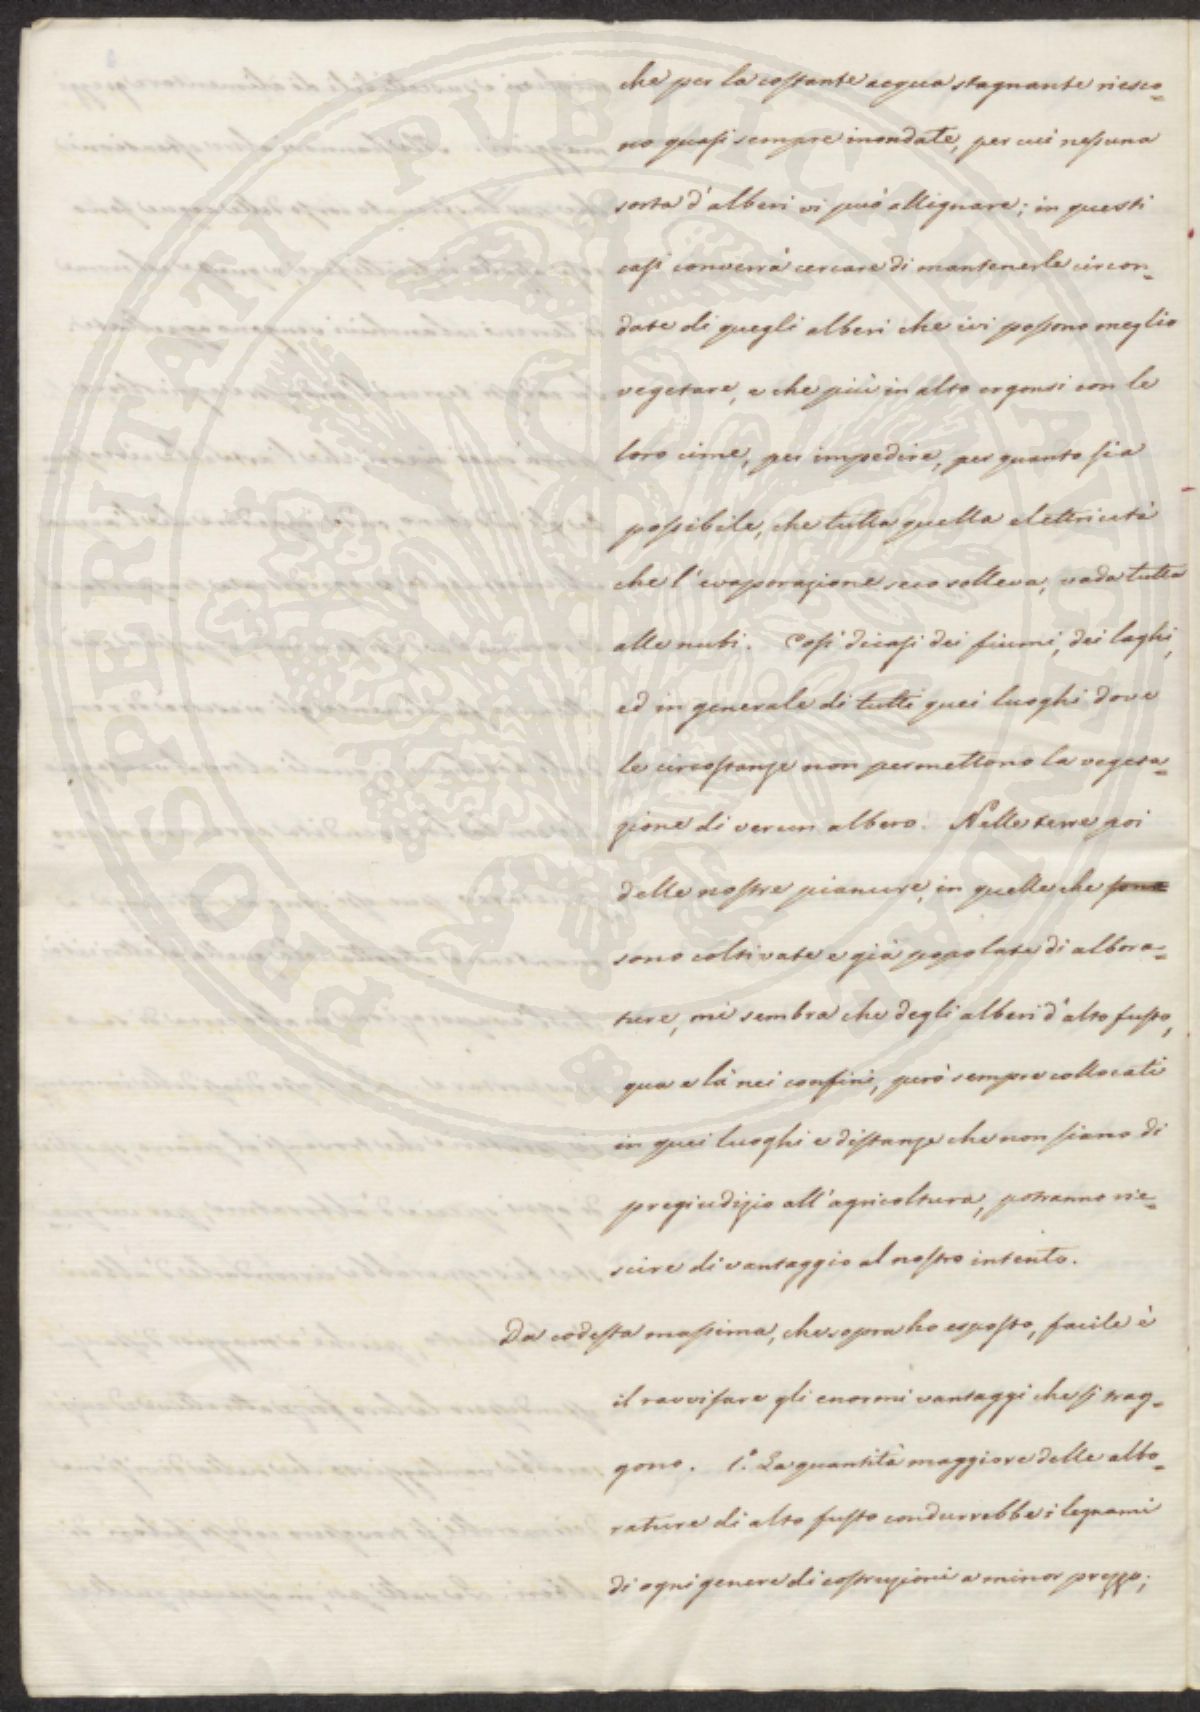 che per la costante acqua stagnante riesco=
no quasi sempre inondate, per cui nessuna
sorta d'alberi vi può allignare; in questi
casi converrà cercare di mantenerle circon=
date di quegli alberi che ivi possono meglio
vegetare, e che più in alto ergonsi con le
loro cime, per impedire, per quanto sia
possibile, che tutta quella elettricità
che l'evaporazione seco solleva, vada tutta
alle nubi. Così dicasi dei fiumi, dei laghi,
ed in generale di tutti quei luoghi dove
le circostanze non permettono la vegeta=
zione di verun albero. Nelle terre poi
delle nostre pianure, in quelle che sono
sono coltivate e già popolate di albora=
ture, mi sembra che degli alberi d'alto fusto,
qua e là nei confini, però sempre collocati
in quei luoghi e distanze che non siano di
pregiudizio all'agricoltura, potranno rie=
scire di vantaggio al nostro intento.
Da codesta massima, che sopra ho esposto, facile è
il ravvisare gli enormi vantaggi che si trag=
gono. 1.° La quantità maggiore delle albo=
rature di alto fusto condurrebbe i legnami
di ogni genere di costruzioni a minor prezzo;
PROSPERITATI PVBLICAE AVGENDAE